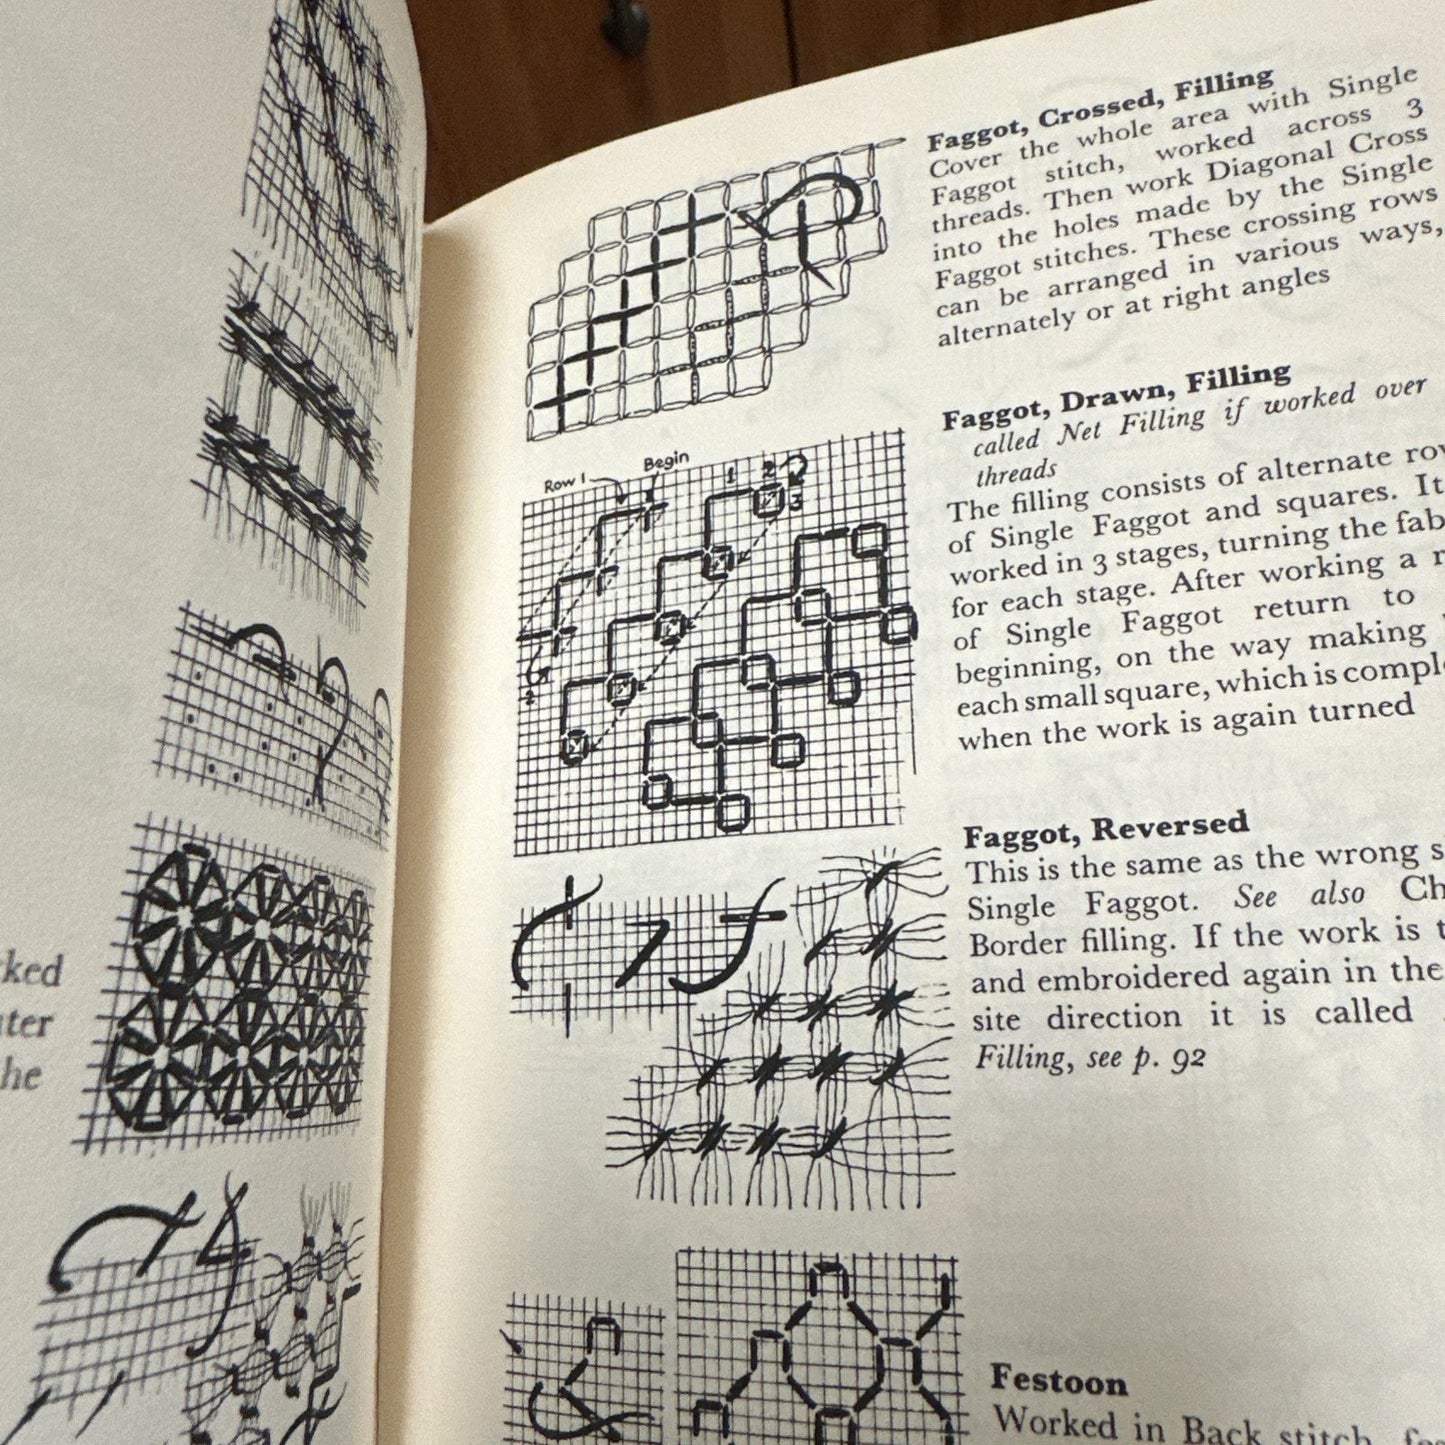 ked
ter
he
Faggot, Crossed, Filling
Cover the whole area with Single
Faggot stitch, worked across 3
threads. Then work Diagonal Cross
into the holes made by the Single
Faggot stitches. These crossing rows
can be arranged in various ways,
alternately or at right angles
Row 1
Begin
1 2
3
Faggot, Drawn, Filling
called Net Filling if worked over
threads
The filling consists of alternate ro
of Single Faggot and squares. It
worked in 3 stages, turning the fab
for each stage. After working a
of Single Faggot return to
beginning, on the way making
each small square, which is compl
when the work is again turned
Faggot, Reversed
This is the same as the wrong s
Single Faggot. See also Ch
Border filling. If the work is t
and embroidered again in the
site direction it is called
Filling, see p. 92
Festoon
Worked in Back stitch,